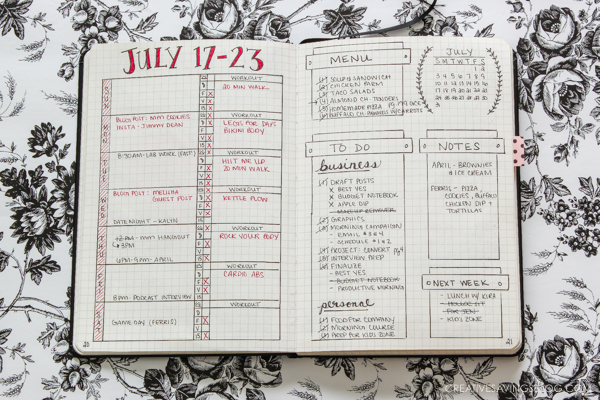 JULY 17-23
SUN
WORKOUT
20 MIN WALK
MON
WORKOUT
BLOG POST: MM COOKIES
INSTA - JIMMY DEAN
LEGS FOR DAYS
BIKINI BODY
TUE
WORKOUT
8:30AM-LAB WORK (FAST!)
HIIT ME UP
20 MIN WALK
WED
WORKOUT
BLOG POST: MELISSA
GUEST POST
KETTLE POW
DATE NIGHT - KALYN
THU
WORKOUT
MM HANGOUT
8PM
ROCK YOUR BODY
6PM-9PM - APRIL
FRI
WORKOUT
CARDIO ABS
8PM - PODCAST INTERVIEW
SAT
WORKOUT
GAME DAY (FERRIS)
20
MENU
SOUP & SANDWICH
CHICKEN PARM
TACO SALADS
ALMOND CH. TENDERS
HOMEMADE PIZZA
BUFFALO CH.
JULY
S M T W T F S
1 2
3 4 5 6 7 8 9
10 11 12 13 14 15 16
17 18 19 20 21 22 23
24 25 26 27 28 29 30
31
TO DO
business
DRAFT POSTS
X BEST YES
X BUDGET NOTEBOOK
X APPLE DIP
MAKEUP REMOVER
GRAPHICS
MORNING CAMPAIGN
- EMAIL #3 & 4
- SCHEDULE #1 & 2
PROJECT: CONVERT pg 4
INTERVIEW PREP
FINALIZE
- BEST YES
- BUDGET NOTEBOOK
- PRODUCTIVE MORNING
personal
FOOD FOR COMPANY
MORNINGS COURSE
PREP FOR KIDS ZONE
NOTES
APRIL - BROWNIES
& ICE CREAM
FERRIS - PIZZA
COOKIES, BUFFALO
CHICKEN DIP +
TORTILLAS
NEXT WEEK
- LUNCH W/ KIRA
- HOUSE SIT
FOR JEN
- KIDS ZONE
21
CREATIVESAVINGSBLOG.COM